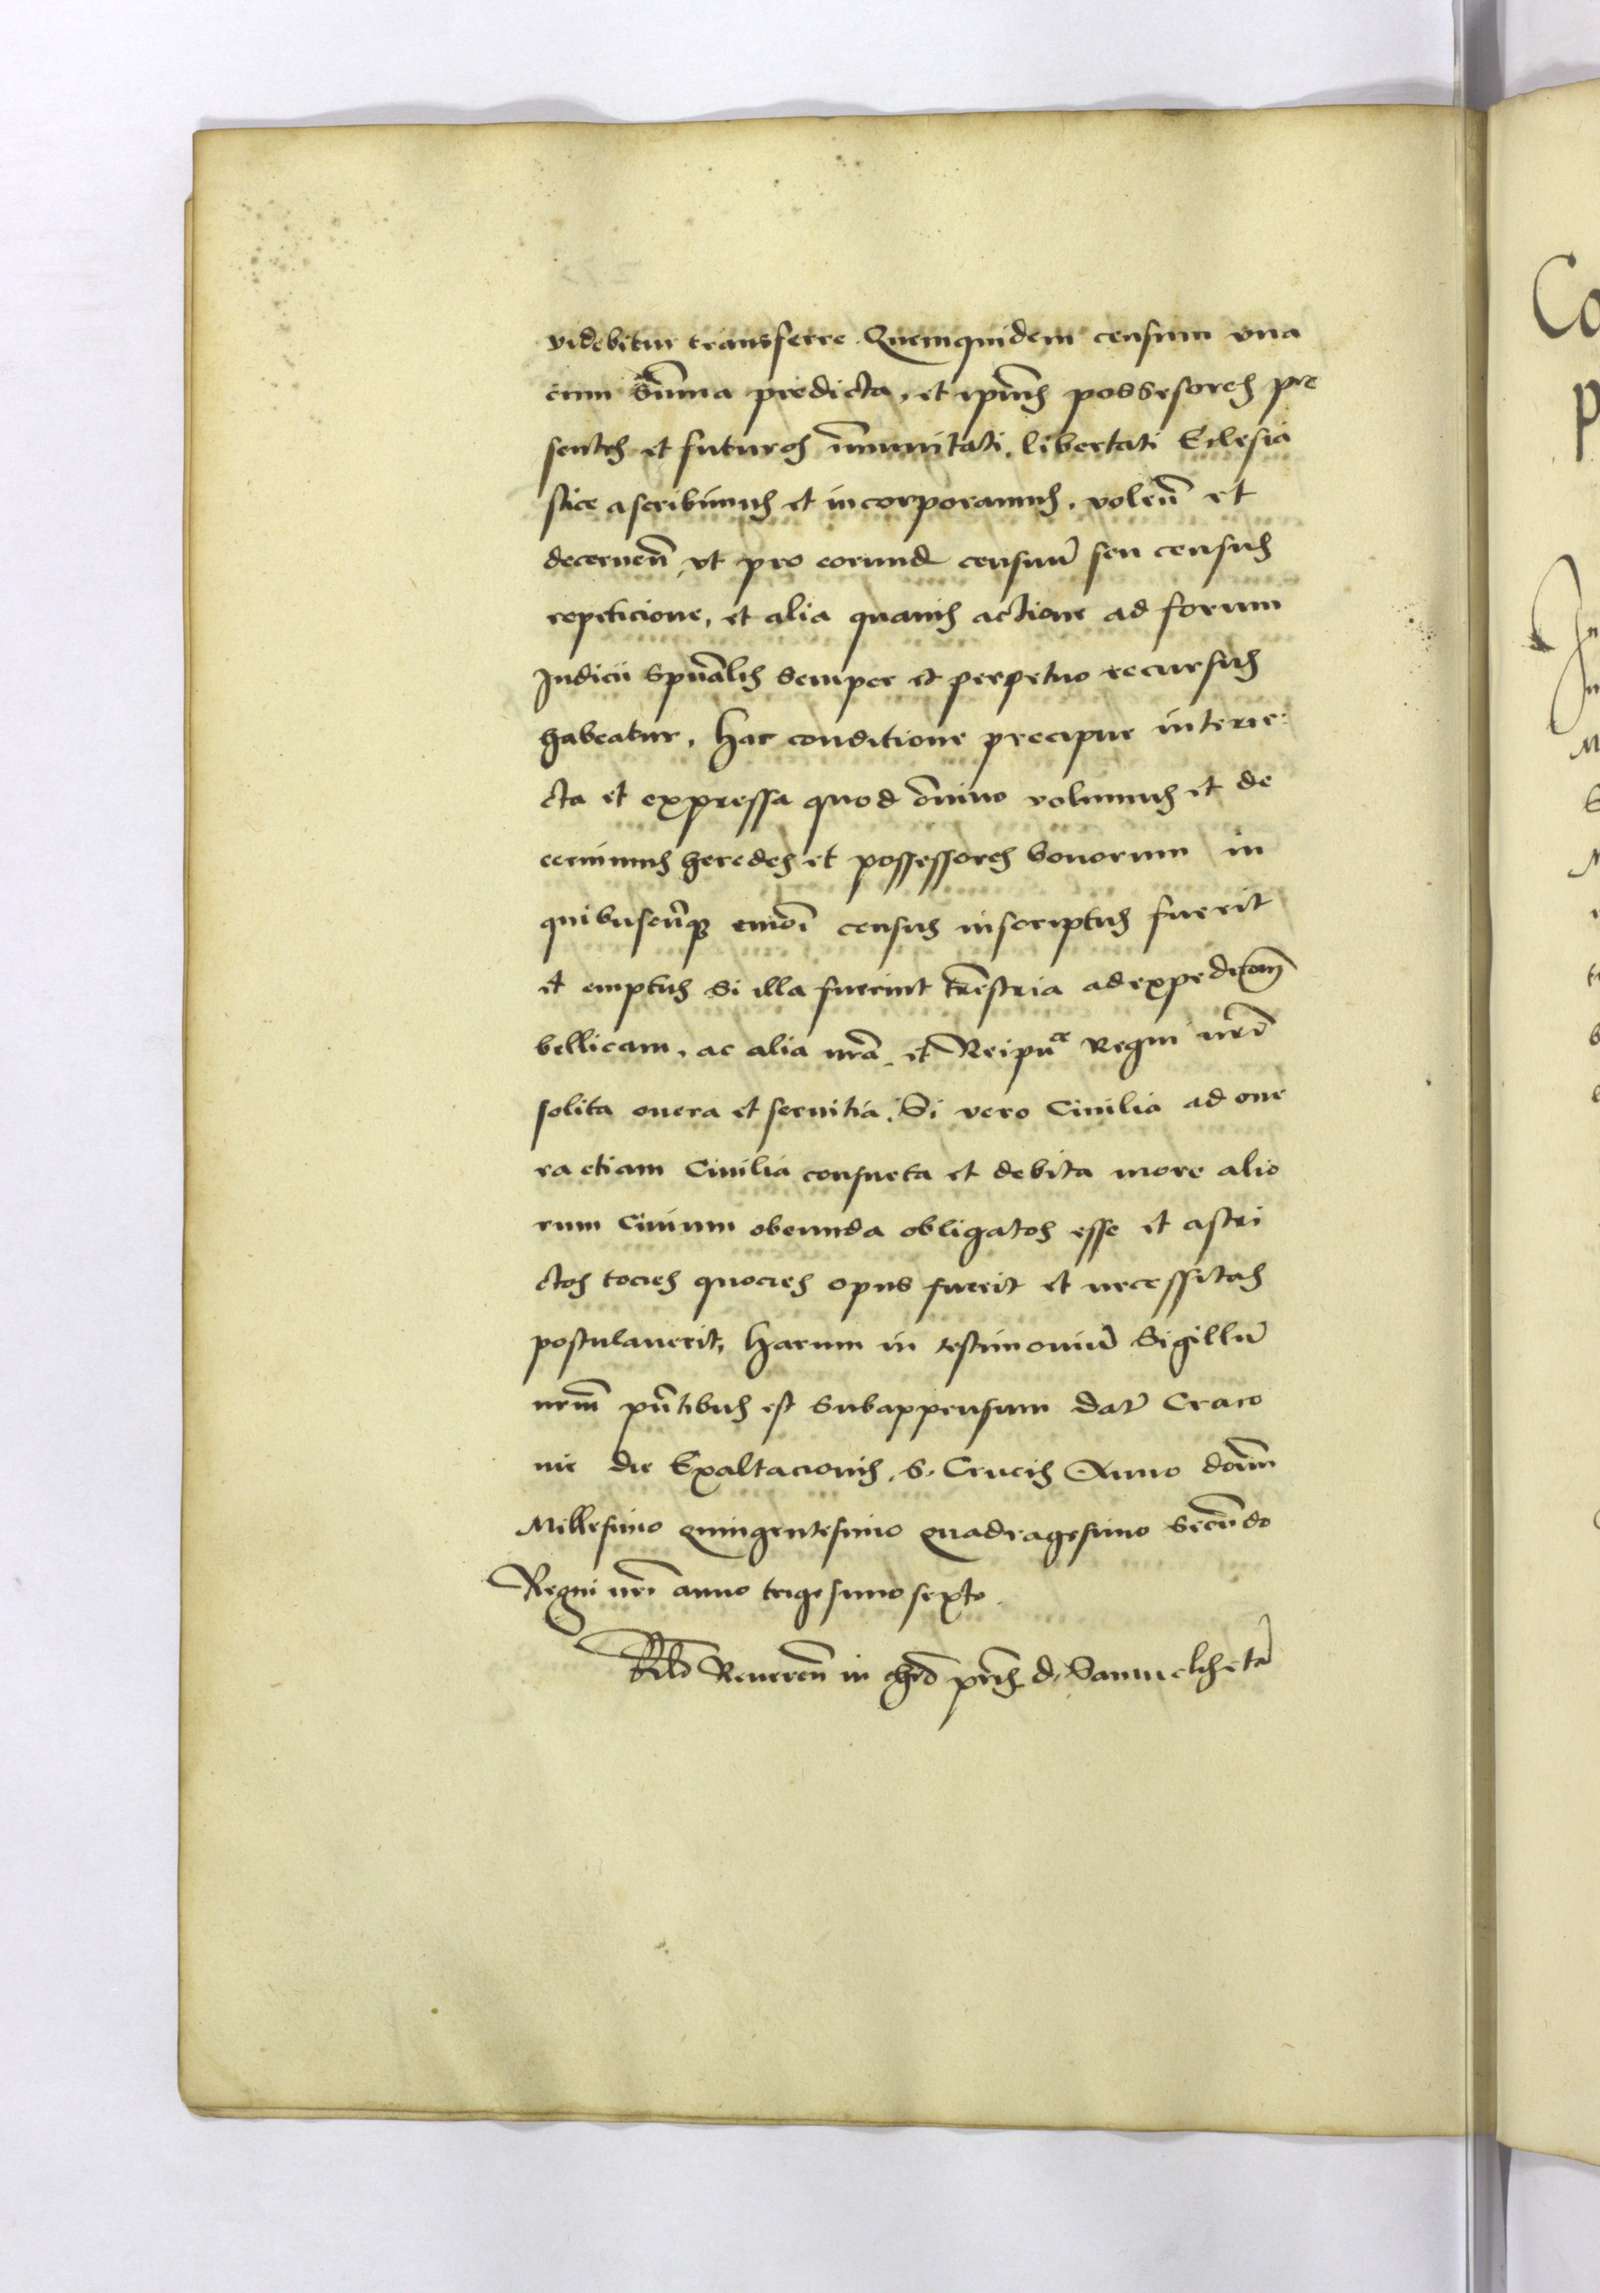 videbitur transferre. Quemquidem censum vna
cum summa predicta, et ipius possesores pre
sentes et futuros immunitati, libertati Eclesia
stice ascribimus et incorporamus, volen̄ et
decernen̄ vt pro eorund censuū seu census
repeticione, et alia quauis actione ad forum
Judicii spūalis semper et perpetuo recursus
habeatur, hac conditione precipue interie:
cta et expressa quod om̄ino volumus et de
cernimus heredes et possessores bonorum in
quibuscūq eiusmoi census inscriptus fuerit
et emptus Si illa fuerint tr̄estria ad expeditionē
bellicam, ac alia nr̄a, et Reipuᶜᵉ Regni nr̄i
solita onera et seruitia, Si vero Ciuilia ad one
ra etiam Ciuilia consueta et debita more alio
rum Ciuium obeunda obligatos esse et astri
ctos tocies quocies opus fuerit et necessitas
postulauerit, harum in testimoniū Sigillū
nrm̄ pn̄tibus est subappensum dat̄ Craco
nie die Exaltacionis .S. Crucis Anno domī
Millesimo quingentesimo quadragesimo secūdo
Regni nri anno trigesimo sexto.
Rlō Reueren̄ in chro pr̄is d. Samuelis etā